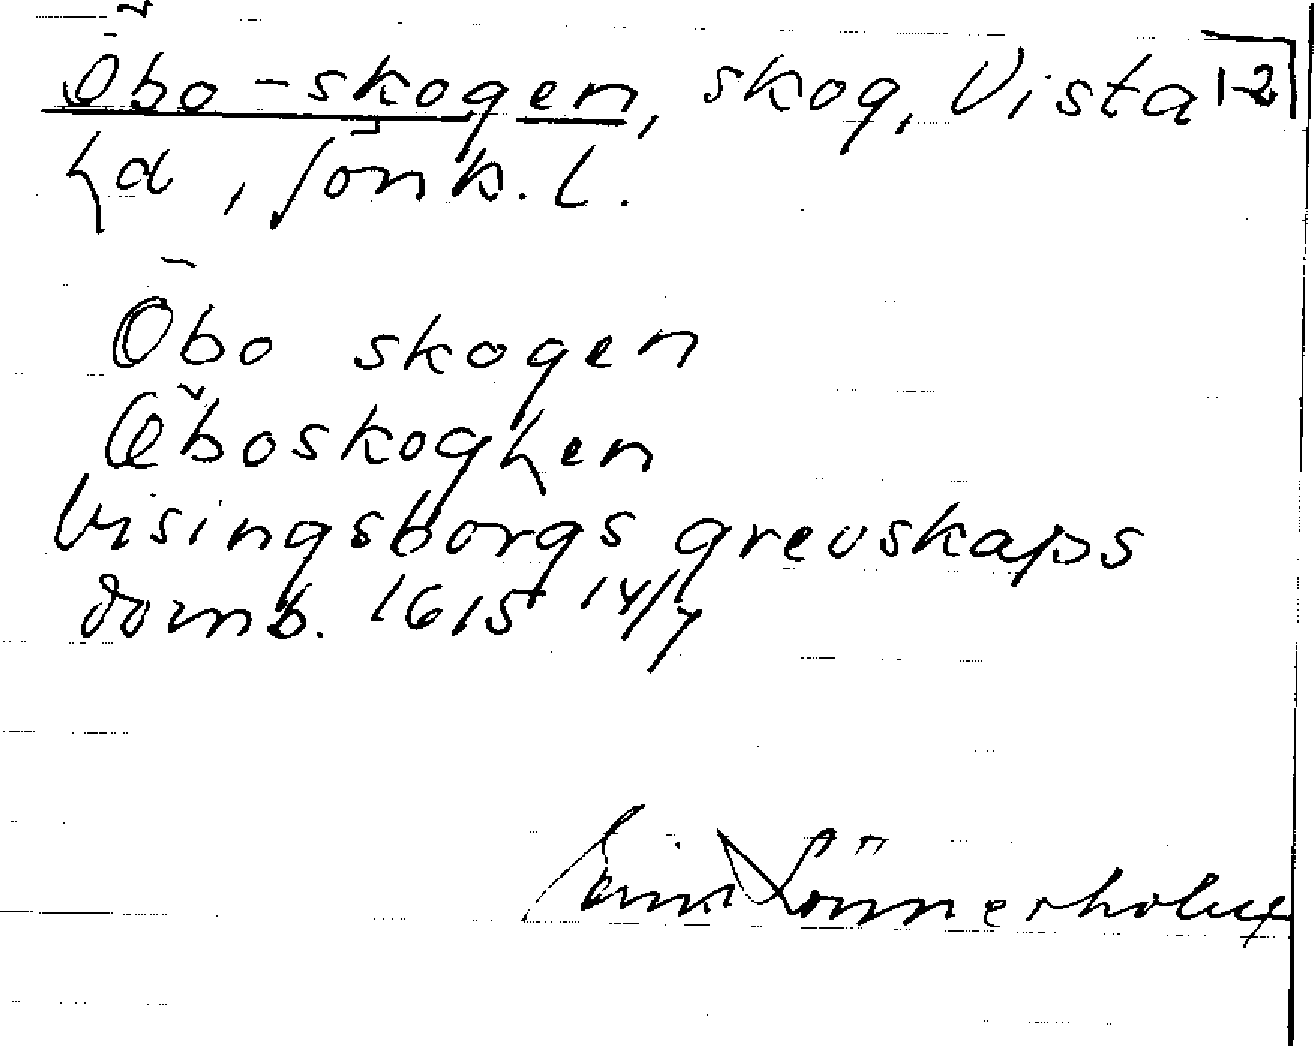 Öbo-skogen, skog, Vista 12
hd, Jönk. l.
Öbo skogen
Œ̆boskoghen
Visingsborgs grevskaps
domb. 1615 14/7
Lönnerholm